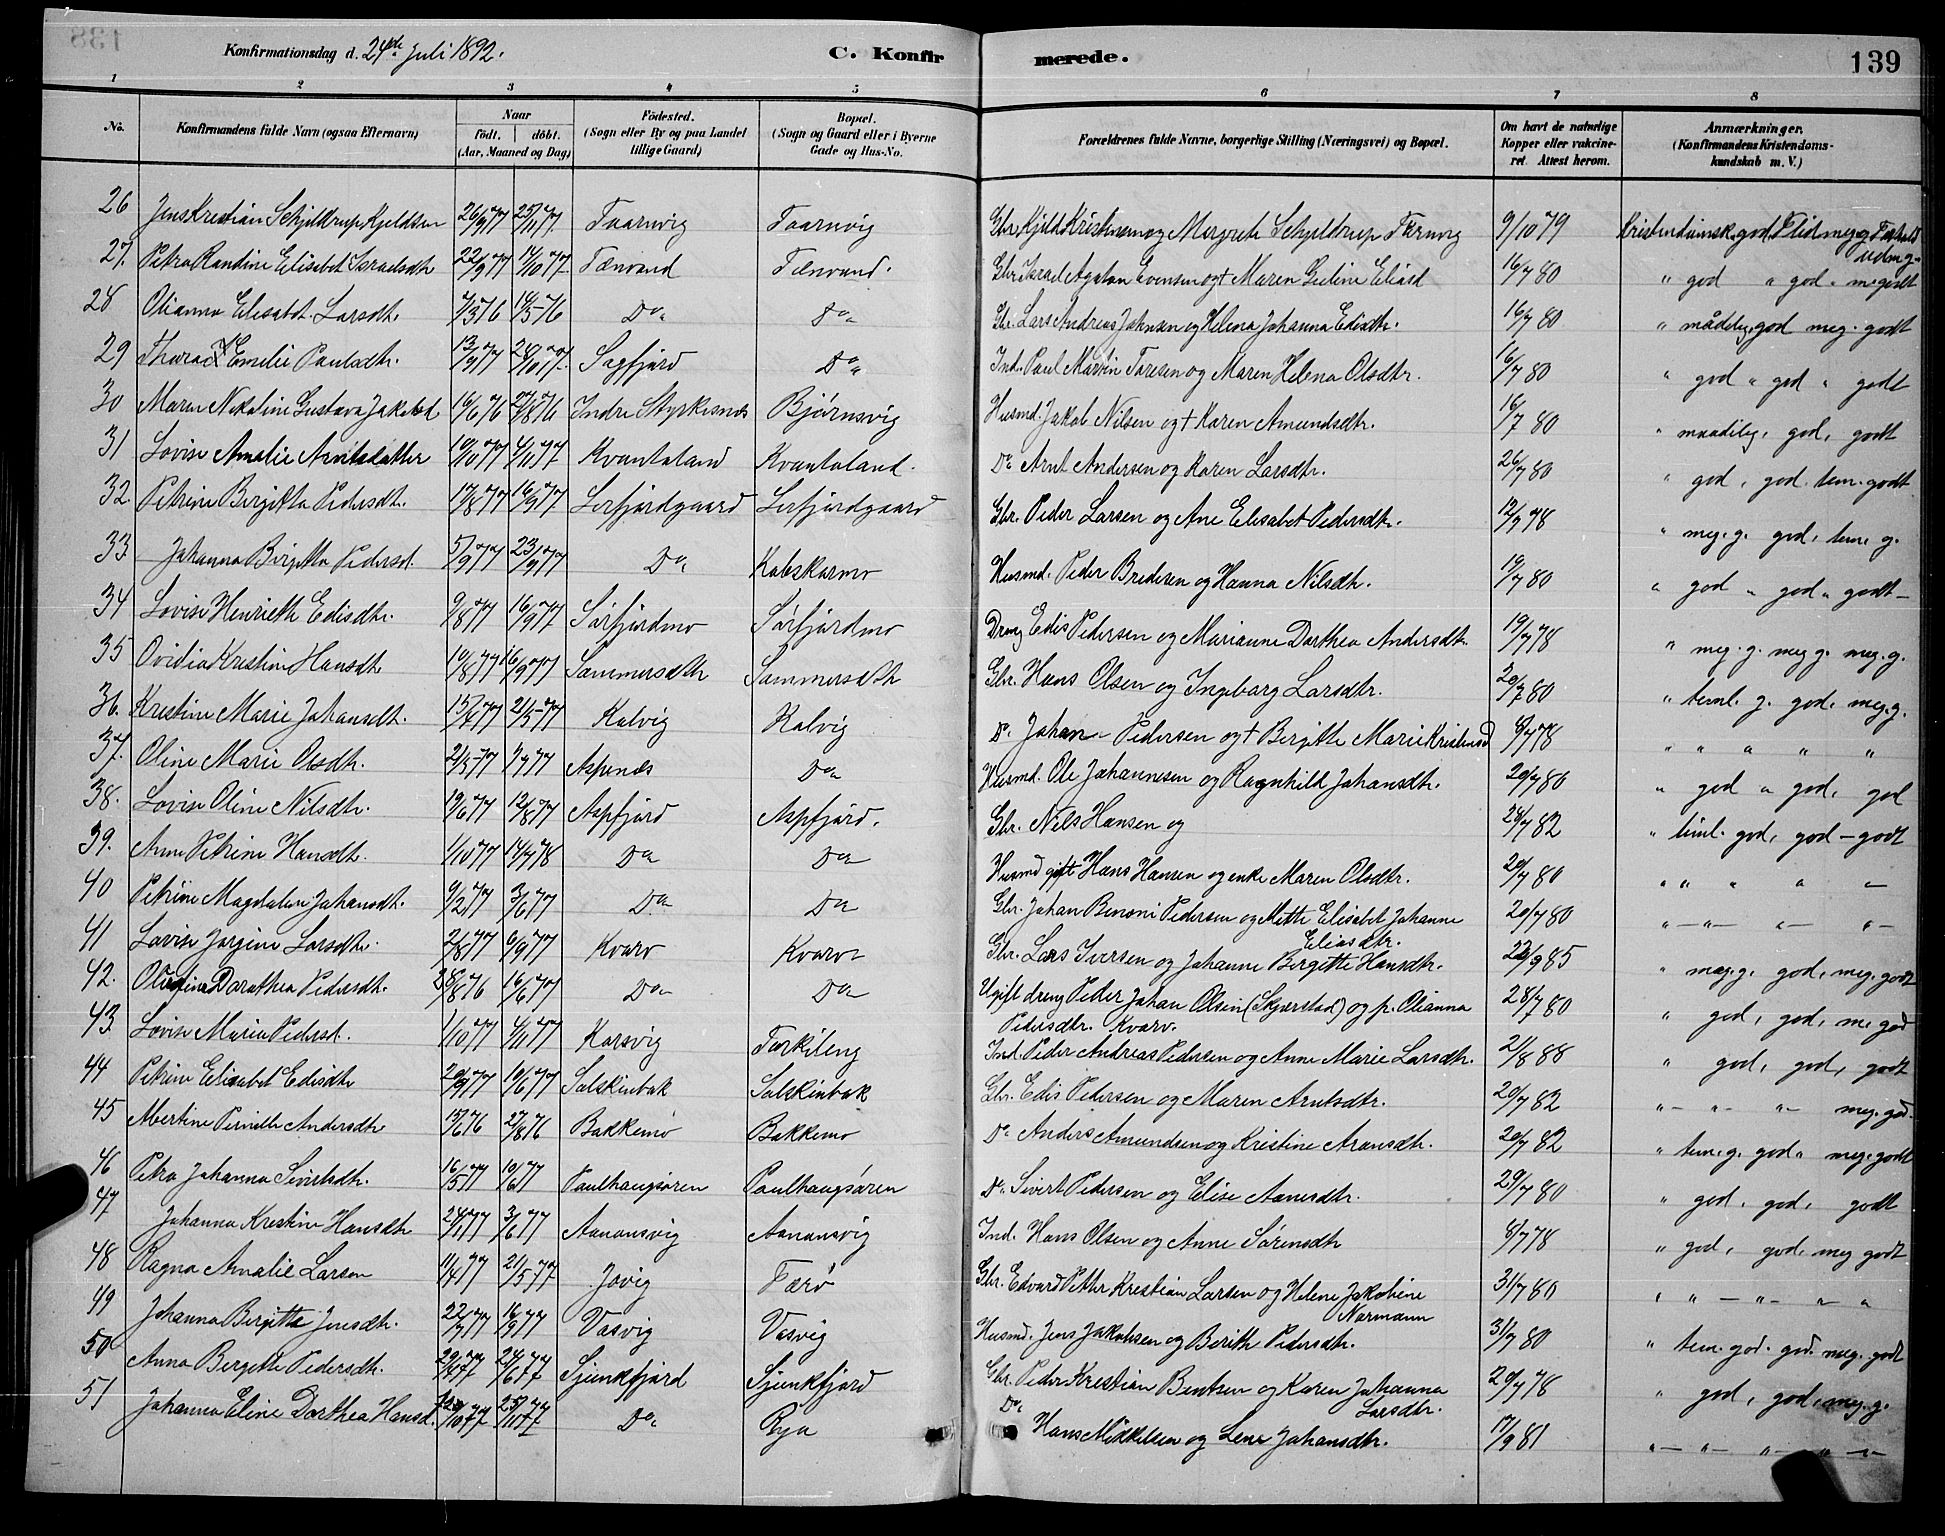 Konfirmationsdag d. 24de Juli 1892. C. Konfirmerede. 139
1 2 3 4 5 6 7 8
No. Konfirmandens fulde Navn (ogsaa Efternavn) Naar födt. döbt. (Aar, Maaned og Dag) Födested. (Sogn eller By og paa Landet tillige Gaard) Bopæl. (Sogn og Gaard eller i Byerne Gade og Hus-No. Forældrenes fulde Navne, borgerlige Stilling (Næringsvei) og Bopæl. Om havt de naturlige Kopper eller vakcineret. Attest herom. Anmærkninger. (Konfirmandens Kristendomskundskab m. V.)
26 Jens Kristian Schjeldrup Kjeldsen 26/9 77 25/11 77. Taarnvig Taarnvig Gbr. Kjeld Kristensen og Margrete Schjeldrup Tårnvig 9/10 79 Kristendomsk. god, Flid meg. g. Forhold udm. g.
27. Petra Randine Elisabet Israelsdtr 22/9 77 14/10 77. Tænvand Tænvand. Gbr. Israel Agaton Evensen og † Maren Gurine Eliasd 16/7 80 " god " god " meg. godt
28 Olianna Elisabet Larsdtr. 7/3 76 14/5 76 Do Do Gbr. Lars Andreas Johnsen og Helena Johanna Edisdtr. 16/7 80 " mådelig, god meg. godt
29 Thora Emelie Paulsdtr. 13/9 77 28/10 77. Sagfjord Do Ind. Paul Martin Toresen og Maren Helena Olsdtr. 16/7 80 " god " god " godt
30 Maren Nikoline Gustava Jakobsd 16/6 76 27/8 76 Indre Styrkesnes Bjørnsvig Husmd. Jakob Nilsen og † Karen Amundsdtr. 16/7 80 " maadelig, god, godt
31 Lovise Amalie Arntsdatter 10/10 77 4/11 77 Kvantoland Kvantoland. Do Arnt Andersen og Karen Larsdtr. 26/7 80 " god, god tem. godt
32 Petrine Birgitta Pedersdt. 17/8 77 16/9 77 Lerfjordgaard Lerfjordgaard Gbr. Peder Larsen og Ane Elisabet Pedersdtr. 12/7 78 " meg. g. god, tem. g.
33 Johanna Birgitta Pedersd. 5/9 77 23/9 77 Do Kobskarmo Husmd. Peder Bredesen og Hanna Nilsdtr. 19/7 80 " god " god " godt
34 Lovise Henriette Edisdtr. 9/8 77 16/9 77 Sørfjordmo Sørfjordmo Dreng Edis Pedersen og Marianne Dorthea Andersdtr. 19/7 78 " meg. g. meg g. meg. g.
35 Ovidia Kristine Hansdtr 19/8 77 16/9 77 Sommersdtr Sommersdtr Gbr. Hans Olsen og Ingeborg Larsdtr. 20/7 80 " teml. g. god, meg. g.
36. Kristine Marie Johansdt. 15/4 77 21/5 77 Kalvig Kalvig Do Johan Pedersen og † Bergitte Marie Kristensd 8/7 78 " " " " "
37. Oline Marie Olsdtr. 2/5 77 1/7 77 Aspenæs Do Husmd. Ole Johannesen og Ragnhild Johansdtr. 20/7 80 " god " god, god
38. Lovise Oline Nilsdtr. 19/6 77 12/8 77 Aspfjord Aspfjord. Gbr. Nils Hansen og 24/7 82 " teml. god, god – godt
39. Anne Petrine Hansdtr. 1/10 77 14/7 78 Do Do Husmd gift Hans Hansen og enke Maren Olsdtr. 20/7 80 " " " " "
40 Petrine Magdalene Johansdt. 9/2 77 3/6 77 Do Do Gbr. Johan Benoni Pedersen og Mette Elisabet Johanne Eliasdtr. 20/7 80 " " " "
41 Lovise Jørgine Larsdtr. 2/8 77 6/9 77 Kvarv Kvarv Gbr. Lars Iversen og Johanne Bergitte Hansdtr. 22/9 85 " meg. g. god, meg. godt
42. Olufine Dorothea Pedersdt. 28/8 76 16/6 77 Do Do Ugift dreng Peder Johan Olsen (Skjærstad) og p. Olianna Pedersdtr. Kvarv. 28/7 80 " god, god, m. god
43. Lovise Maria Pedersd. 1/10 77 4/11 77 Korsvig Torkileng Ind. Peder Andreas Pedersen og Anne Marie Larsdtr. 21/8 88 " god, god, godt
44 Petrine Elisabet Edisdtr 20/4 77 10/6 77 Solskinbak Solskinbak Gbr. Edis Pedersen og Maren Arntsdtr. 20/7 82 " " " meg. god.
45 Albertine Pernille Andersdtr 15/6 76 27/8 76 Bakkemo Bakkemo Do Anders Amundsen og Kristine Aronsdtr. 20/7 82 " tem. g. god " meg. godt
46 Petra Johanna Sivertsdtr. 16/5 77 10/6 77 Paulhaugsøren Paulhaugsøren Do Sivert Pedersen og Elise Aanesdtr. 29/7 80 " god, god, godt
47 Johanna Kristine Hansdtr 24/1 77 3/6 77 Aanonsvig Aanonsvig Ind. Hans Olsen og Anne Sørensdtr 8/7 78 " god, god, meg godt
48 Ragna Amalie Larsen 11/4 77 21/5 77 Jovig Færø Gbr. Edvard Petter Kristian Larsen og Helene Jakobine Normann 31/7 80 " " " " "
49 Johanna Birgitta Jensdtr. 22/7 77 16/9 77 Vasvig Vasvig Husmd. Jens Jakobsen og Berith Pedersdtr. 31/7 80 " tem. god. god. meg. godt
50 Anna Bergitte Pedersdt. 29/4 77 24/6 77 Sjunkfjord Sjunkfjord Gbr. Peder Kristian Bentsen og Karen Johanna Larsdtr. 20/7 78 " god, god, meg. g.
51 Johanna Eline Dorthea Hansd. 10 77 25/11 77 Do Rya Do Hans Mikkelsen og Lene Johansdtr. 17/9 81 " " " " "